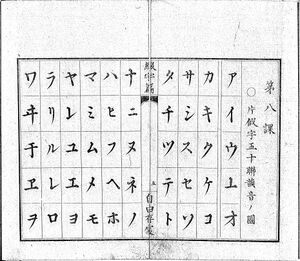 第八課
○片假字五十聯音ノ圖
アイウエオ
カキクケコ
サシスセソ
タチツテト
綴字篇
五
自由
ナニヌネノ
ハヒフヘホ
マミムメモ
ヤユヨ
ラリルレロ
ワヰ于ヱヲ